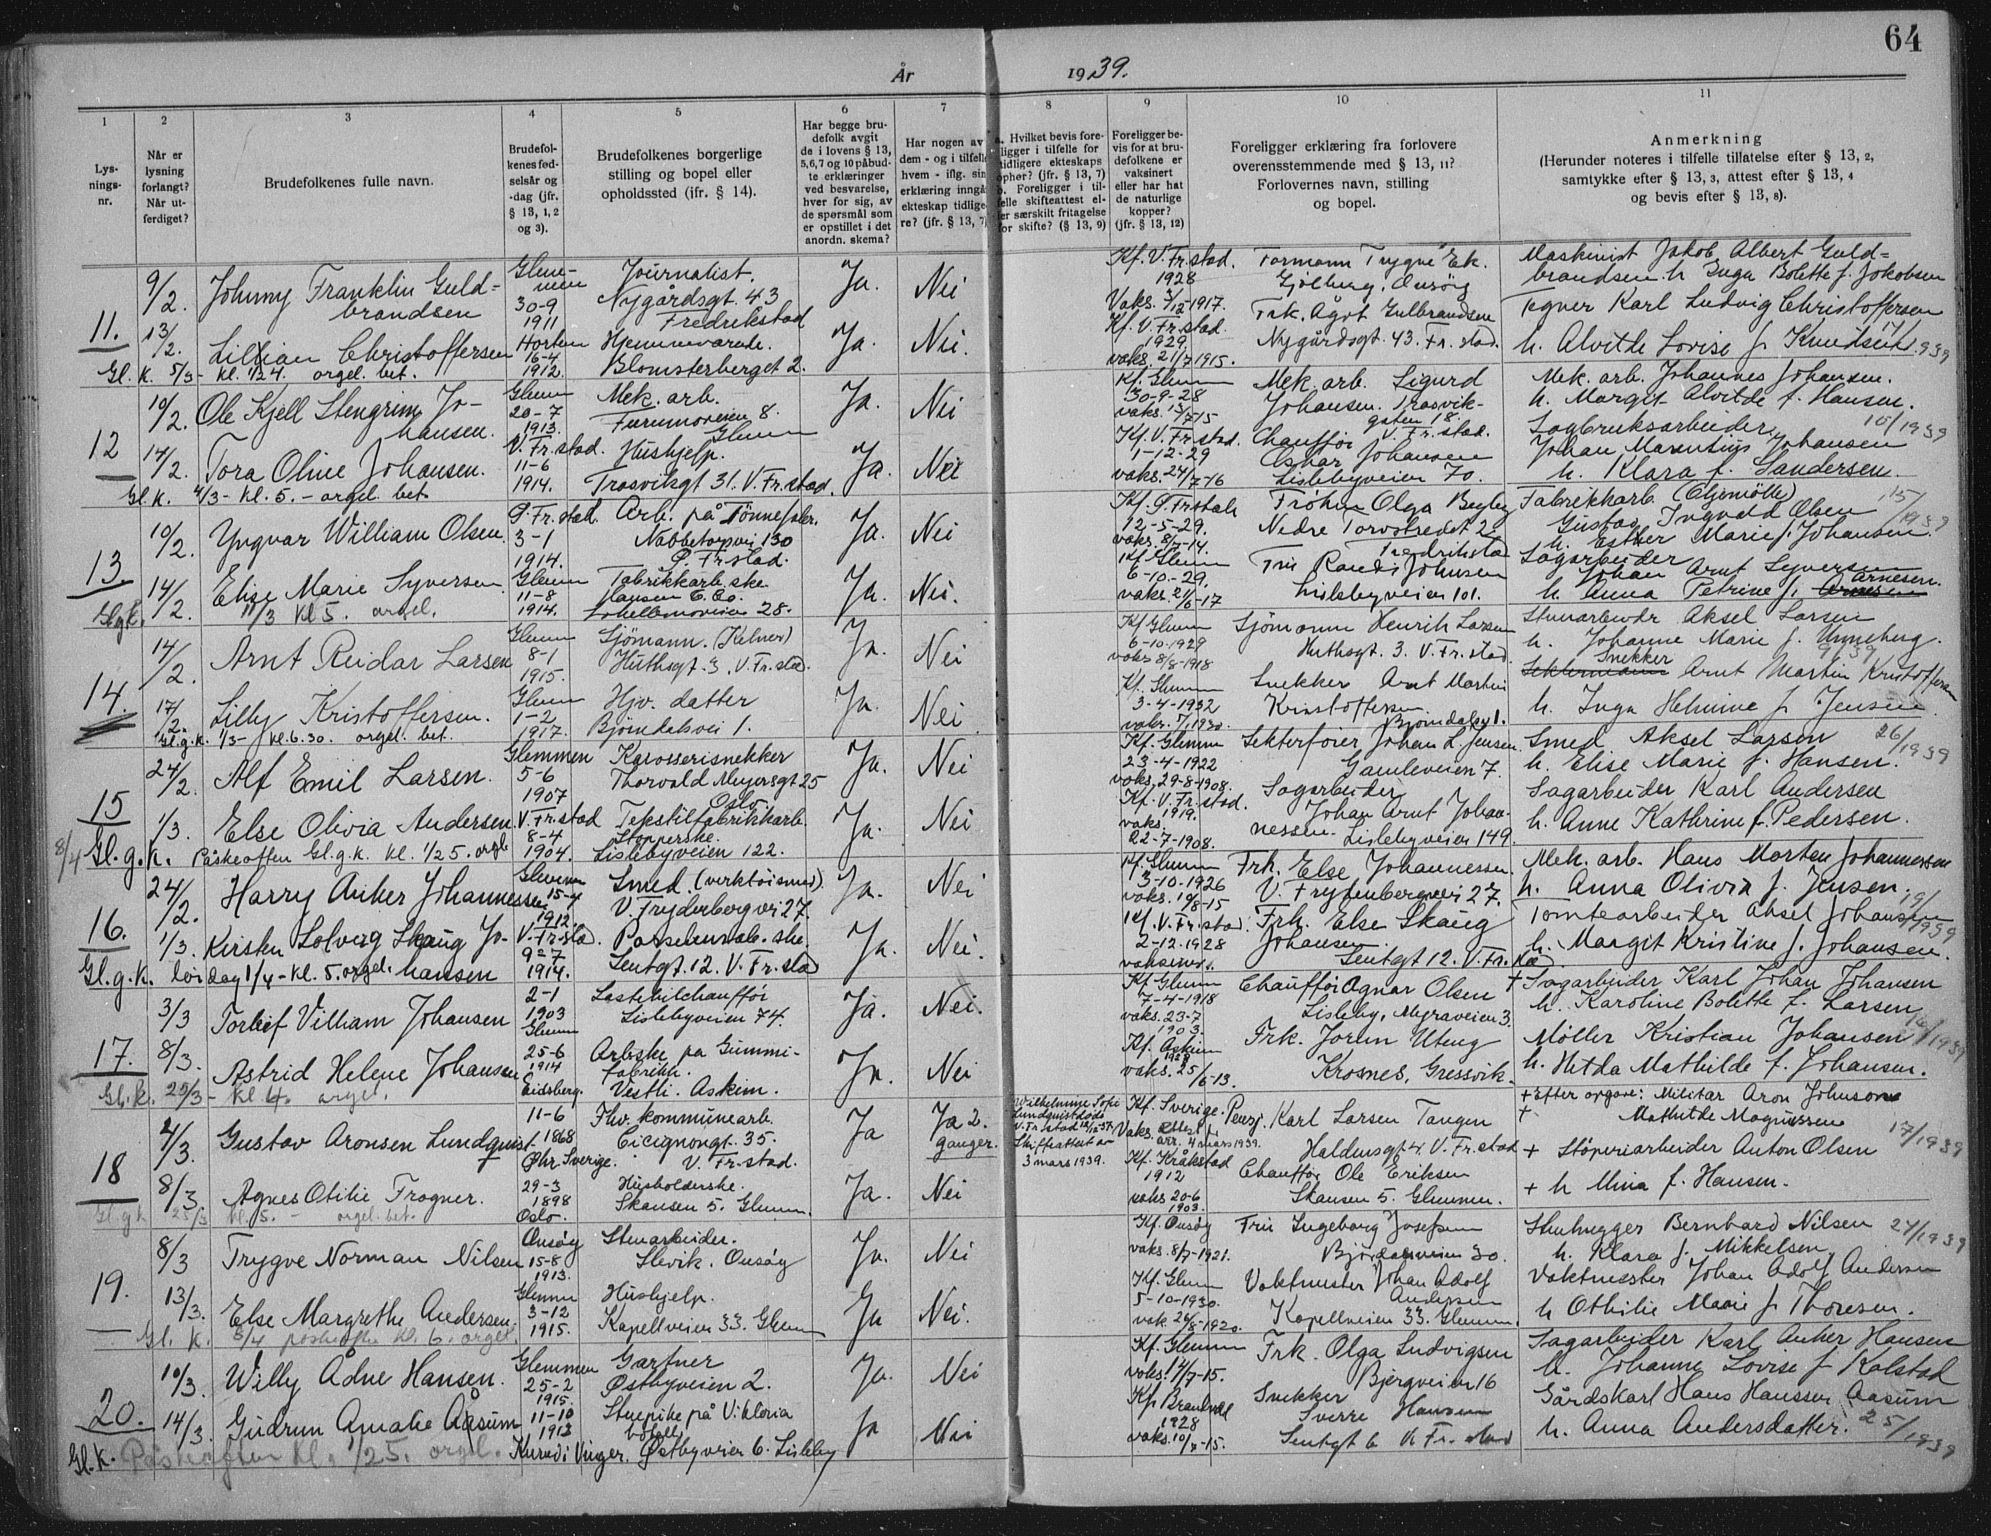 64
År 1939.
1 2 3 4 5 6 7 8 9 10 11
Lysnings-nr.
Når er lysning forlangt? Når utferdiget?
Brudefolkenes fulle navn.
Brudefolkenes fødselsår og -dag (jfr. § 13, 1, 2 og 3).
Brudefolkenes borgerlige stilling og bopel eller opholdssted (ifr. § 14).
Har begge brudefolk avgit de i lovens § 13, 5,6,7 og 10 påbudte erklæringer ved besvarelse, hver for sig, av de spørsmål som er opstillet i det anordn. skema?
Har nogen av dem - og i tilfelle hvem - iflg. sin erklæring inngått ekteskap tidligere? (jfr. § 13, 7)
Hvilket bevis foreligger i tilfelle for tidligere ekteskaps ophør? (jfr. § 13, 7) b. Foreligger i tilfelle skifteattest eller særskilt fritagelse for skifte? (§ 13, 9)
Foreligger bevis for at brudefolkene er vaksinert eller har hat de naturlige kopper? (jfr. § 13, 12)
Foreligger erklæring fra forlovere overensstemmende med § 13, 11? Forlovernes navn, stilling og bopel.
Anmerkning (Herunder noteres i tilfelle tillatelse efter § 13, 2, samtykke efter § 13, 3, attest efter § 13, 4 og bevis efter § 13, 8).
11.
9/2. Johnny Franklin Guldbrandsen
30-9 1911
Journalist. Nygårdsgt. 43 Fredrikstad
Ja. Nei
Kf. V. Fr.stad. 1928
Formann Trygve Ek. Gjølberg, Onsøy
Maskinist Jakob Albert Guldbrandsen h. Inga Bolette f. Jokobsen
13/2. Lillian Christoffersen
Horten 16-4 1912.
Hjemmeværende. Blomsterberget 2.
Ja. Nei.
Kf. V. Fr.stad. 1929. vaks. 21/7 1915.
Frk. Ågot Gulbrandsen Nygårdsgt. 43. Fr.stad.
Tegner Karl Ludvig Christoffersen h. Alvilde Lovise f. Knudsen
Gl. K. 5/3 - kl. 1/2 4. orgel. bet.
12
10/2. Ole Kjell Stengrim Johansen.
Glemm 20-7 1913.
Mek. arb. Furumoveien 8. Glemm
Ja. Nei
Kf. Glemm 30-9-28
Mek. arb. Sigurd Johansen. Trosvikgaten 18. V. Fr.stad.
Mek. arb. Johannes Johansen. h. Margit Alvilde f. Hansen.
14/2. Tora Oline Johansen.
V. Fr.stad. 11-6 1914.
Hushjelp. Trosvikgt 31. V. Fr.stad.
Ja. Nei
Kf. V. Fr.stad. 1-12-29 vaks. 24/7-16
Chauffør Oskar Johansen Lislebyveien 70.
Sagbruksarbeider Johan Marentius Johansen h. Klara f. Sandersen.
10/1939
Gl. K. 4/3 - kl. 5. - orgel. bet.
13.
10/2. Yngvar William Olsen.
3-1 1914.
Arb. på Tønnefabr. Nabbetorpvei 130
Ja. Nei
12-5-29. vaks. 8/7-14.
Frøken Olga Begby Nedre Torvstredet 2 Fredrikstad
Fabrikkarb. (Oljemølle) Gustav Ingvald Olsen h. Esther Marie f. Johansen.
15/1939
14/2. Elise Marie Syversen
Glemm 11-8 1914.
Fabrikkarb.ske Hansen & Co.
Ja. Nei.
Kf. Glemm 6-10-29. vaks. 21/6-17
Fru Randi Johnsen Lislebyveien 101.
Sagarbeider Johan Arnt Syversen h. Anna Petrine f. Arnesen.
11/3 kl 5. orgel.
14.
14/2. Arnt Reidar Larsen
Glemm 8-1 1915.
Sjømann. (Kelner) Huthsgt. 3. V. Fr.stad.
Ja. Nei
Kf. Glemm 6-10-1929 vaks 8/8-1918
Sjømann Henrik Larsen Huthsgt. 3. V. Fr.stad.
Stenarbeider Aksel Larsen h. Johanne Marie f. Unneberg.
17/2. Lilly Kristoffersen.
Glemm 1-2 1917.
Hjv. datter Bjørndalsvei 1.
Ja. Nei
Kf. Glemm 3-4-1932
Snekker Arnt Martin Kristoffersen Bjørndalsv. 1.
Snekker Arnt Martin Kristoffersen h. Inga Helmine f. Jensen
Gl.g.k. 1/3 - kl. 6.30. orgel. bet.
15
24/2. Alf Emil Larsen.
Glemmen 5-6 1907
Karosserisnekker Thorvald Meyersgt 25 Oslo.
Ja. Nei
Kf. Glemm 23-4-1922 vaks. 29-8-1908.
Johan L. Jensen. Gamleveien 7.
Smed Aksel Larsen h. Elise Marie f. Hansen.
26/1939
1/3. Else Olivia Andersen.
V. Fr.stad 8-4 1904.
Tekstilfabrikkarb. Stopperske. Lislebyveien 122.
Ja. Nei
Kf. V. Fr.stad. 1919. vaks. 22-7-1908.
Sagarbeider Johan Arnt Johannessen. Lislebyveien 149.
Sagarbeider Karl Andersen h. Anne Kathrine f. Pedersen.
8/4 Gl.g.K. Påskeaften Gl.g.k. kl. 1/2 5. orgel
16.
24/2. Harry Anker Johannessen
Glemm 15-4 1912.
Smed. (verktøismed). V. Fryderbergvei 27.
Ja. Nei
Kf. Glemm 3-10-1926
Frk. Else Johannessen. V. Frydenbergvei 27.
Mek. arb. Hans Morten Johannessen h. Anna Olivia f. Jensen.
1/3. Kirsten Solveig Skaug Johansen
V. Fr.stad. 9-7 1914.
Sentgt. 12. V. Fr.stad
Ja. Nei.
Kf. V. Fr.stad. 2-12-1928
Frk. Else Skaug Johansen. Sentgt 12. V. Fr.stad
Tomtearbeider Aksel Johansen h. Margit Kristine f. Johansen.
Gl.g.K. lørdag 1/4 - kl. 5. orgel.
17.
3/3 Torleif Villiam Johansen
2-1 1903 Glemm
Lastebilchauffør Lislebyveien 74.
Ja. Nei.
Kf. Glemm 7-4-1918 vaks. 23-7 1903.
Chauffør Agnar Olsen Lisleby, Myraveien 3.
+ Sagarbeider Karl Johan Johansen h. Karoline Bolette f. Larsen
8/3. Astrid Helene Johansen
25-6 1914 Eidsberg.
Arb.ske på Gummifabrikk. Vestli. Askim.
Ja. Nei
Kf. Askim 1929 vaks. 25/6-13.
Frk. Jorun Uteng Krosnes, Gressvik.
Møller Kristian Johansen h. Hilda Mathilde f. Johansen.
Gl.K. 25/3 - kl 4. orgel.
18
4/3. Gustav Aronsen Lundquist
11-6 1868 Sverige.
Fhv. kommunearb. Cicignongt. 35. V. Fr.stad.
Ja Ja 2. ganger.
Wilhelmine Sofie Lundquist døde V. Fr.stad Skifteattest av 3 mars 1939.
Kf. Sverige. 4 mars 1939.
Karl Larsen Tangen Haldensgt 4. V. Fr.stad
+ Efter opgave: Militær Aron Johnson
+ Mathilde Magnussen
17/1939
8/3. Agnes Otilie Frogner.
29-3 1898 Oslo.
Husholderske. Skansen 5. Glemm.
Ja. Nei
Kf. Kråkstad 1912 vaks 20-6 1903.
Chauffør Ole Eriksen Skansen 5. Glemmen.
+ Støperiarbeider Anton Olsen
+ h Mina f. Hansen.
Gl.g.k 25/3 kl. 5. - orgel. bet.
19.
8/3 Trygve Norman Nilsen
Onsøy 15-8 1913.
Stenarbeider. Slevik. Onsøy
Ja. Nei
Kf. Onsøy vaks. 8/7-1921.
Fru Ingeborg Josefsen Bjørdalsveien 30.
Stenhugger Bernhard Nilsen h. Klara f. Mikkelsen,
13/3. Else Margrethe Andersen.
Glemm 3-12 1915.
Hushjelp. Kapellveien 33. Glemm
Ja Nei.
Kf. Glemm 5-10-1930. vak. 26/8-1920.
Vaktmester Johan Adolf Andersen Kapellveien 33. Glemm.
Vaktmester Johan Adolf Andersen h Othilie Marie f. Thoresen.
Gl. K. 8/4 påskeaft. kl. 6. orgel
20.
10/3. Willy Ådne Hansen.
Glemmen 25-2 1915.
Gartner Østbyveien 2.
Ja. Nei
Kf. Glemm vaks. 14/7-15.
Frk. Olga Ludvigsen Bjergveien 16
Sagarbeider Karl Anker Hansen h. Johanne Lovise f Kolstad
14/3. Gudrun Amalie Aasum
11-10 1913
Stuepike på Viktoria hotell
Ja Nei
1928 vaks. 10/7-15.
Snekker Sverre Hansen Sentgt 6 V. Fr.stad
Gårdskarl Hans Hanssen Aasum h. Anna Andersdatter.
25/1939
Gl.K. Påskeaften kl. 1/2 5. orgel. Østbyveien 6. Lisleby